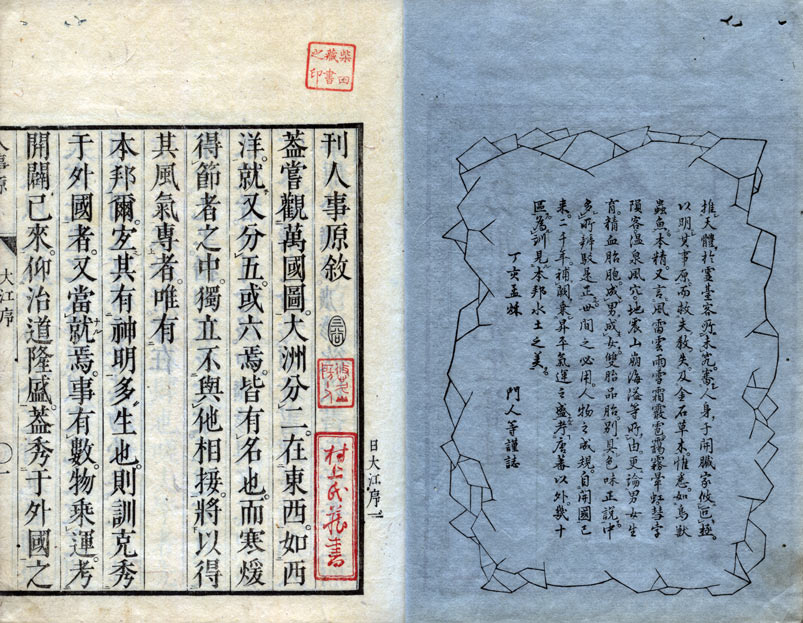 推天體於靈臺。察所未究。審人身。于開臟。家攸叵極。
以明其事原。而救失教失。及金石草木。惟悉如鳥獸
蟲魚。本精。又言風雷雲雨雪霜霰雹。靄霧暈虹彗孛
隕。客溫泉風穴。地震山崩海溢等所由。更論男女生
育。精血胎胞。成男成女。雙胎品胎。別具色味正説。中
多所辨駁。是正世間之必用。人物之成規。自開國已
來。二千年。補闕乘昇平氣運之盛。考唐蕃以外幾十
區爲訓。見本邦水土之美。
丁亥孟秋
門人等謹誌
日大江序一
柴田
藏書
之印
刊人事原敘
村上氏藏書
葢嘗觀萬國圖。大洲分二。在東西。如西
洋。就又分五。或六焉。皆有名也。而寒煖
得節者之中。獨立不與他相接。將以得
其風氣專者。唯有
本邦爾。宐其有神明多生也。則訓克秀
于外國者。又當就焉。事有數。物乘運。考
開闢已來。仰治道隆盛。葢秀于外國之
人事原
大江序
〇一